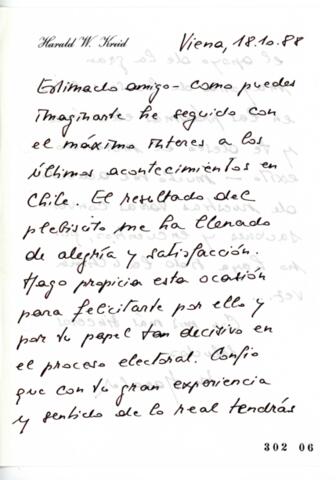 Harald W. Kreid
Viena, 18.10.88
Estimado amigo - como puedes
imaginarte he seguido con
el máximo interes a los
últimos acontecimientos en
Chile. El resultado del
plebiscito me ha llenado
de alegría y satisfacción.
Hago propicia esta ocasión
para felicitarte por ello y
por tu papel tan decisivo en
el proceso electoral. Confío
que con tu gran experiencia
y sentido de lo real tendrás
302 06